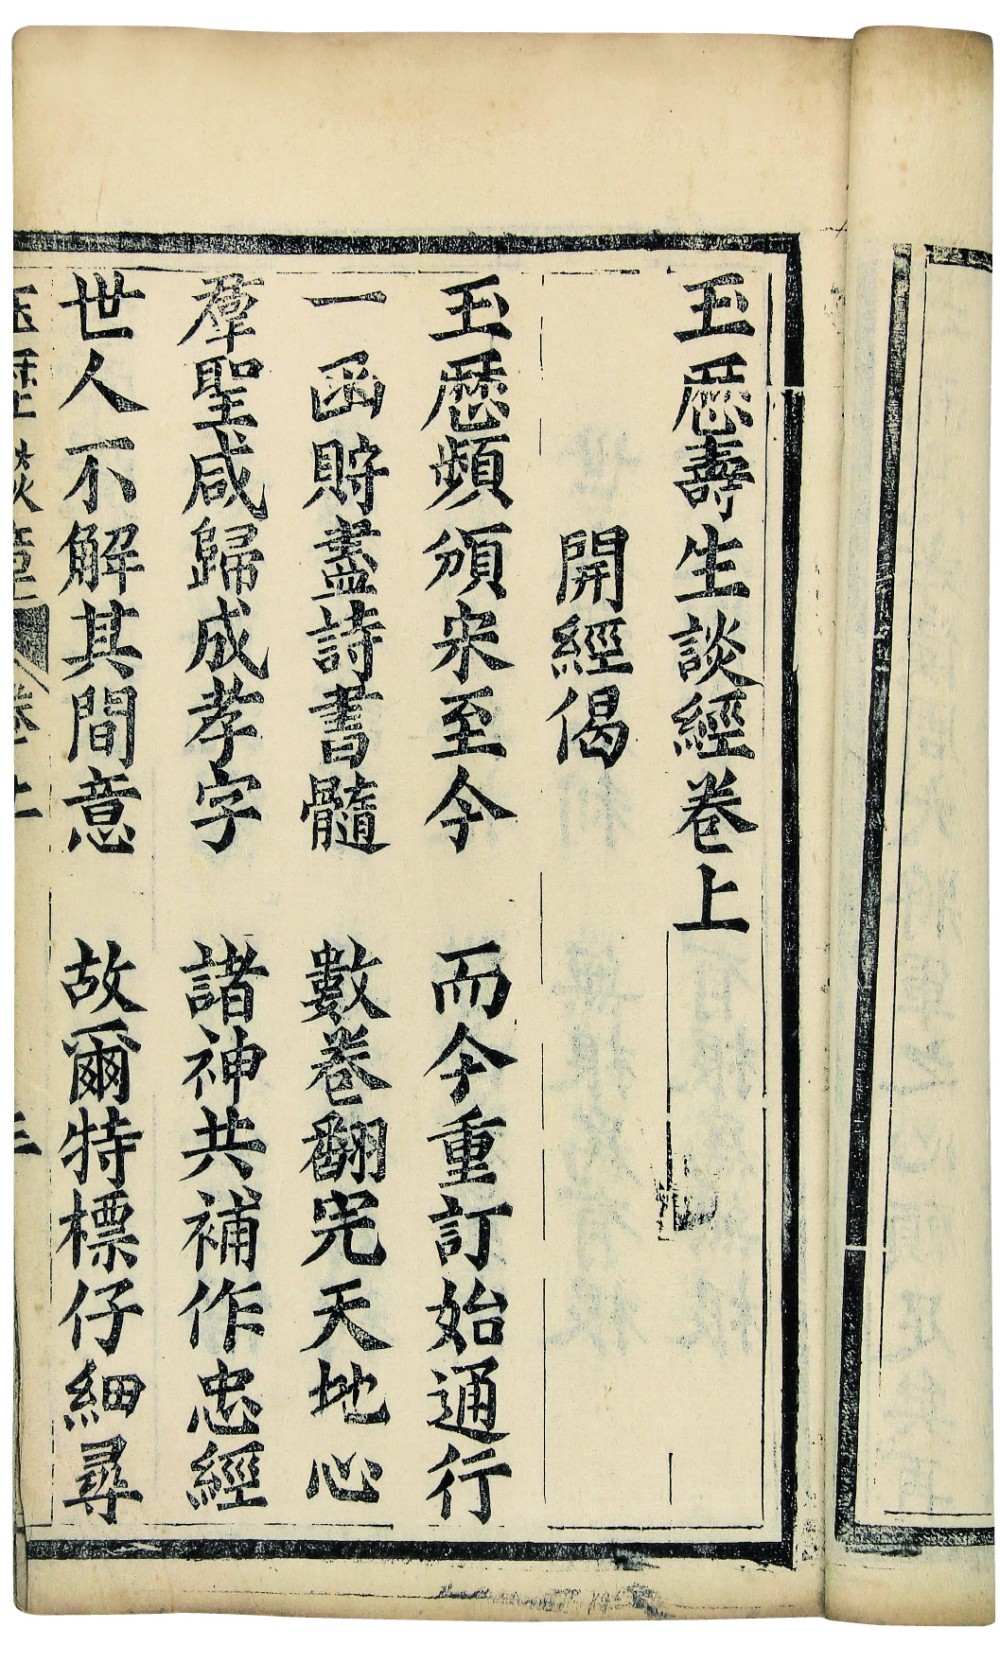 玉厯壽生談經卷上
開經偈
玉厯頻頒宋至今　而今重訂始通行
一函貯盡詩書髓　數卷翻完天地心
羣聖咸歸成孝字　諸神共補作忠經
世人不解其間意　故爾特標仔細尋
卷上　三